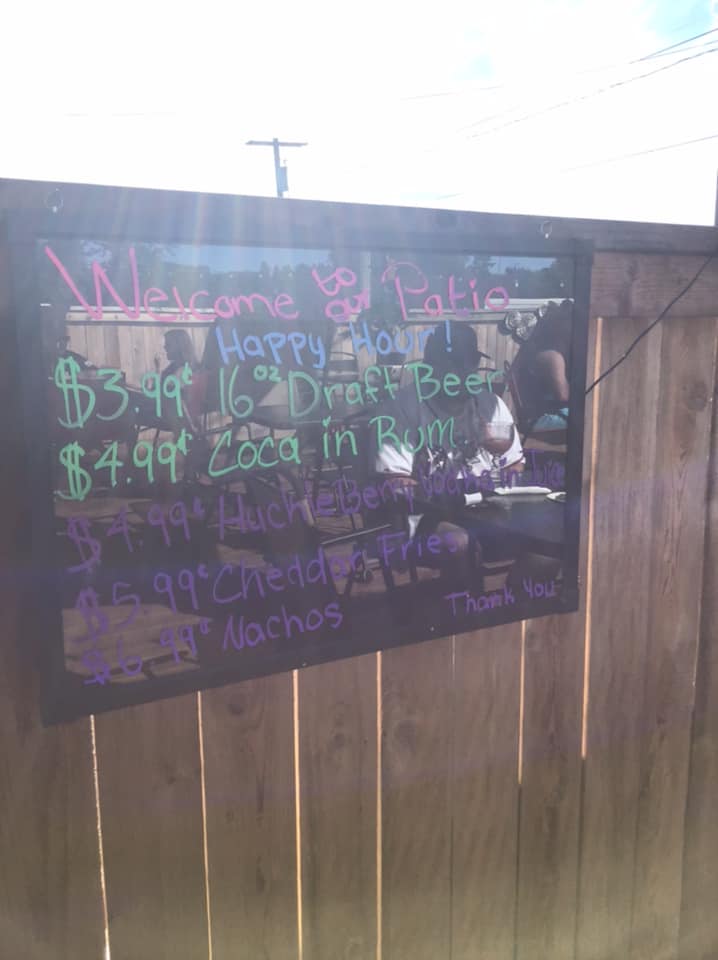 Welcome to our Patio
Happy Hour!
$3.99¢ 16 oz Draft Beer
$4.99¢ Coca in Rum
$4.99¢ HuckleBerry Vodka in
$5.99¢ Cheddar Fries
$6.99¢ Nachos
Thank You